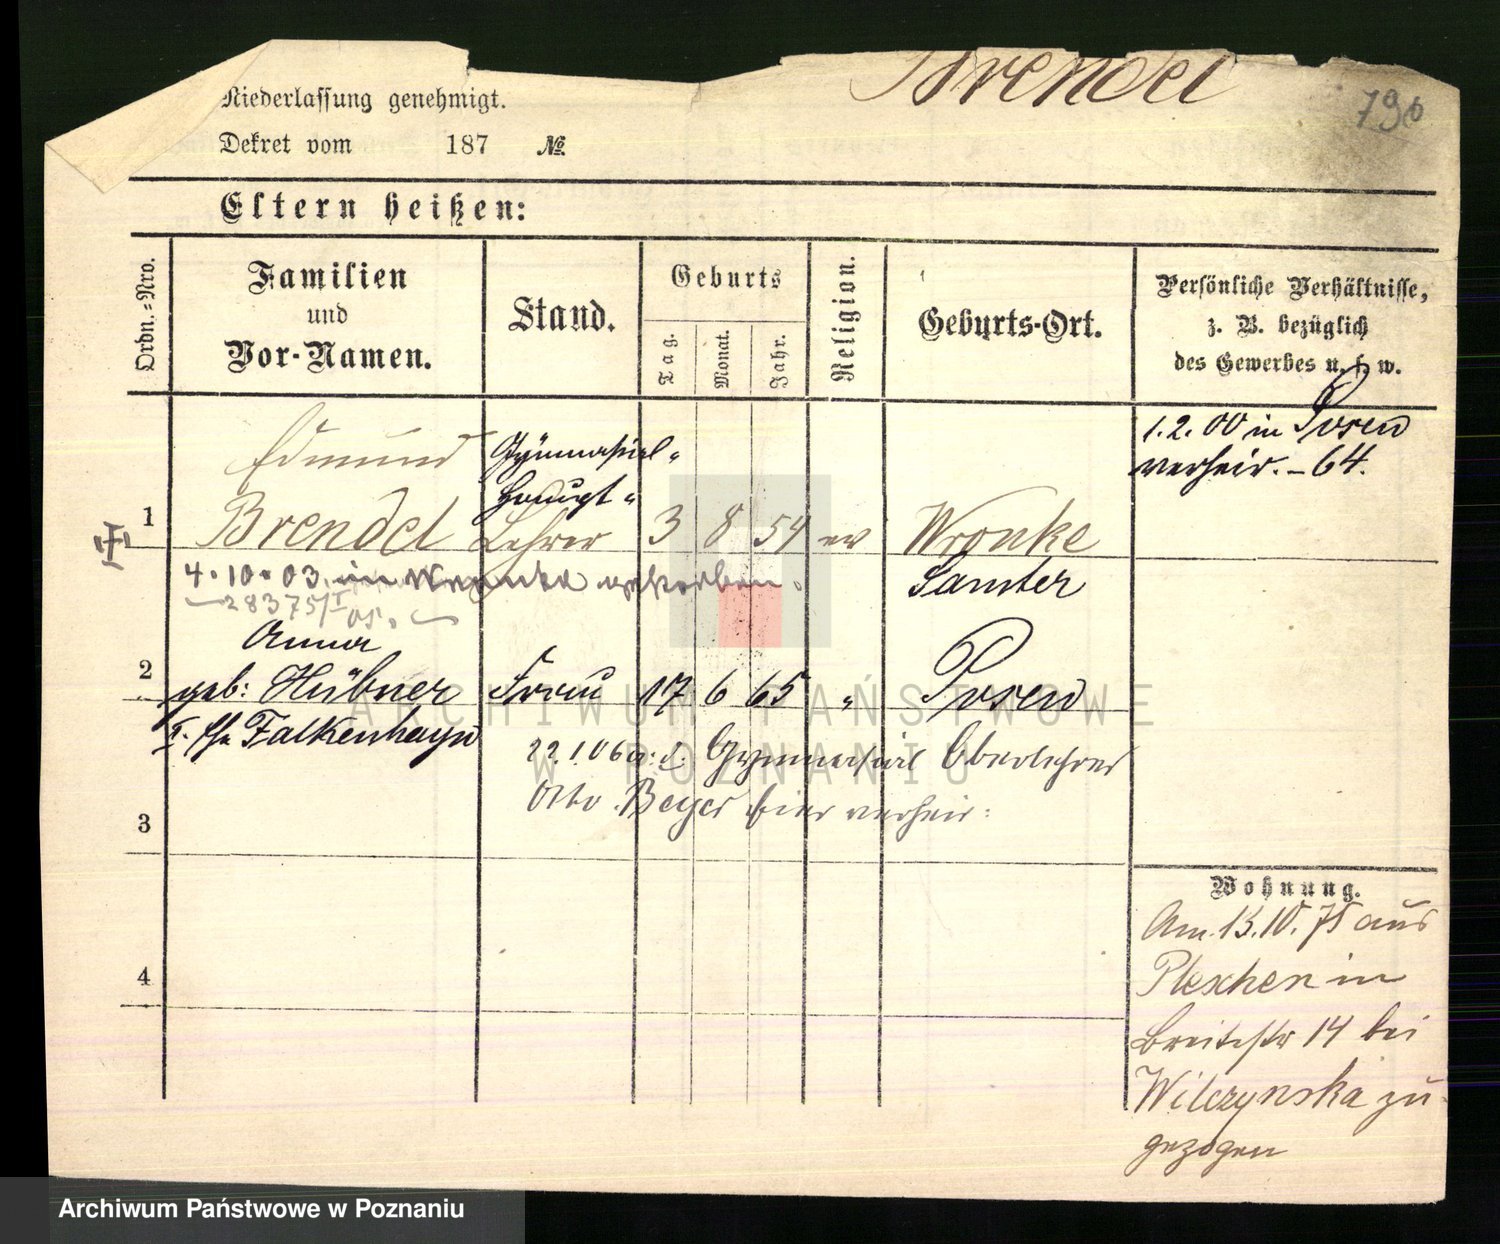 Brendel
Niederlassung genehmigt.
790
Dekret vom 187 №
Eltern heißen:
Ordn.-Nro.
Familien
und
Vor-Namen.
Stand.
Geburts
Tag.
Monat.
Jahr.
Religion.
Geburts-Ort.
Persönliche Verhältnisse,
z. B. bezüglich
des Gewerbes u. s. w.
1
Edmund
Brendel
Gymnasial-
Haupt-
Lehrer
3 8 54 ev
Wronke
Samter
1.2.00 in Posen
verheir. - 64.
4.10.03 in Wronke gestorben.
28375/I
2
Anna
geb: Hübner
Frau 17 6 65 " Posen
Falkenhayn
22.1.06 a: d. Gymnasial Oberlehrer
Otto Beyer hier verheir:
3
4
Wohnung.
Am 13.10.75 aus
Pleschen in
Breitestr 14 bei
Wilczynska zu
gezogen
ARCHIWUM PAŃSTWOWE
W POZNANIU
Archiwum Państwowe w Poznaniu